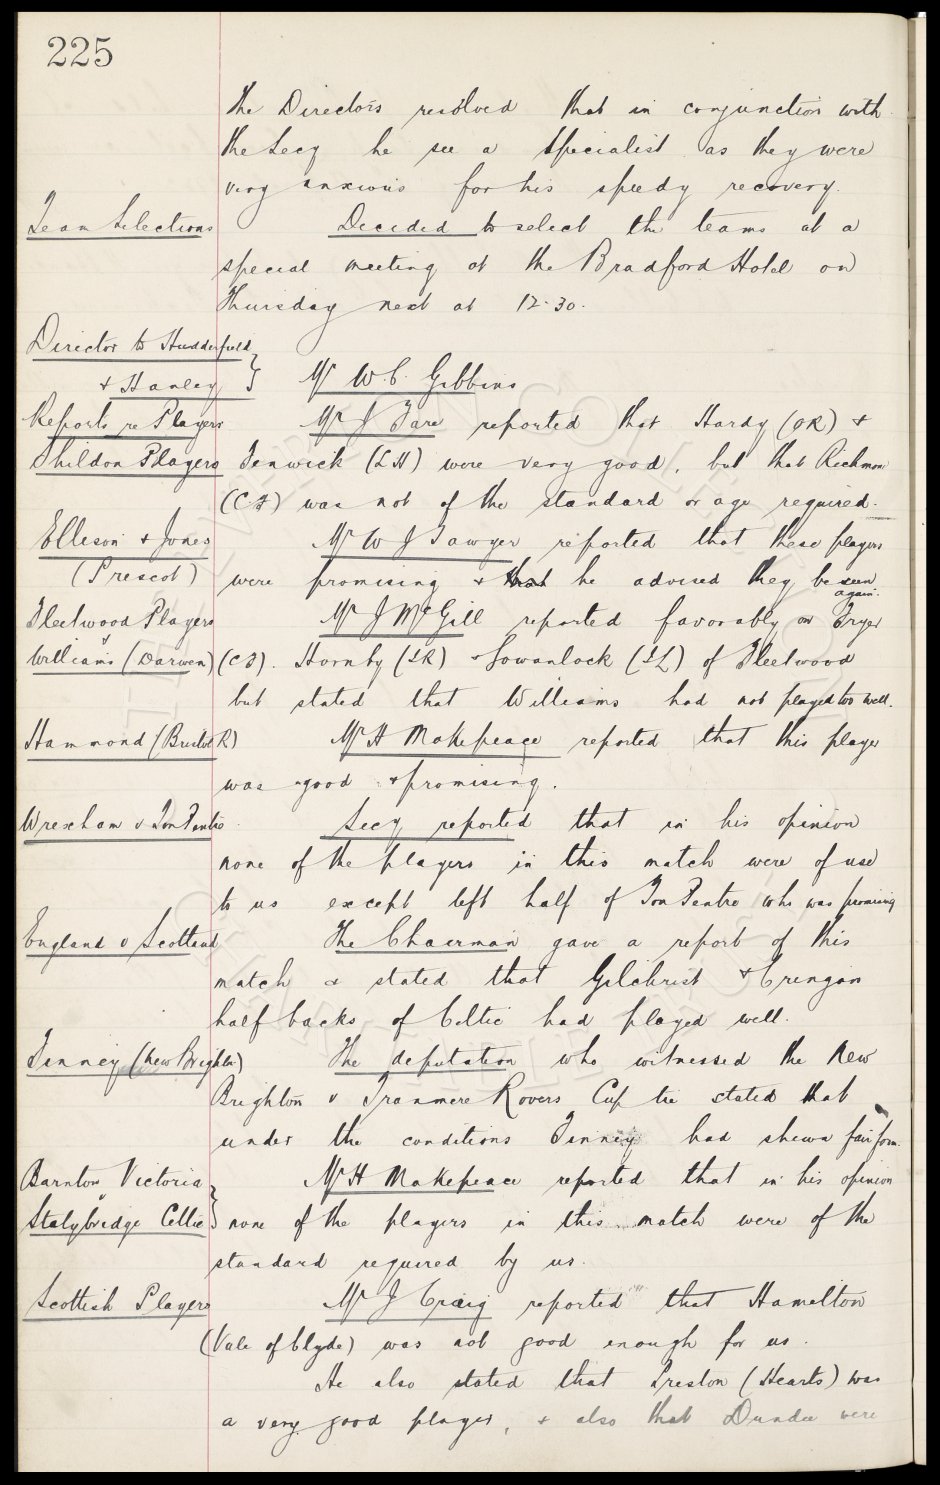 225
the Directors resolved that in conjunction with
the Secy he see a Specialist as they were
very anxious for his speedy recovery.
Team Selections Decided to select the teams at a
special meeting at the Bradford Hotel on
Thursday next at 12-30.
Director to Huddersfield
& Hanley } Mr W.C. Gibbins
Reports re Players Mr J Fare reported that Hardy (OR) &
Shildon Players Fenwick (LH) were very good, but that Richmond
(CF) was not of the standard or age required.
Ellison & Jones Mr W J Sawyer reported that these players
(Prescot) were promising & that he advised they be seen
again.
Fleetwood Players Mr J McGill reported favorably on Fryer
Williams (Darwen) (CF). Hornby (IR) & Gowanlock (IL) of Fleetwood
but stated that Williams had not played too well.
Hammond (Bristol R) Mr H Makepeace reported that this player
was good & promising.
Wrexham v Ton Pentre Secy reported that in his opinion
none of the players in this match were of use
to us except left half of Ton Pentre who was promising
England v Scotland The Chairman gave a report of this
match & stated that Gilchrist & Cringan
half backs of Celtic had played well.
Finney (New Brighton) The deputation who witnessed the New
Brighton v Tranmere Rovers Cup tie stated that
under the conditions Finney had shewn fair form.
Barnton Victoria Mr H Makepeace reported that in his opinion
v
Stalybridge Celtic } none of the players in this match were of the
standard required by us.
Scottish Players Mr J Craig reported that Hamilton
(Vale of Clyde) was not good enough for us.
He also stated that Preston (Hearts) was
a very good player, & also that Dundee were